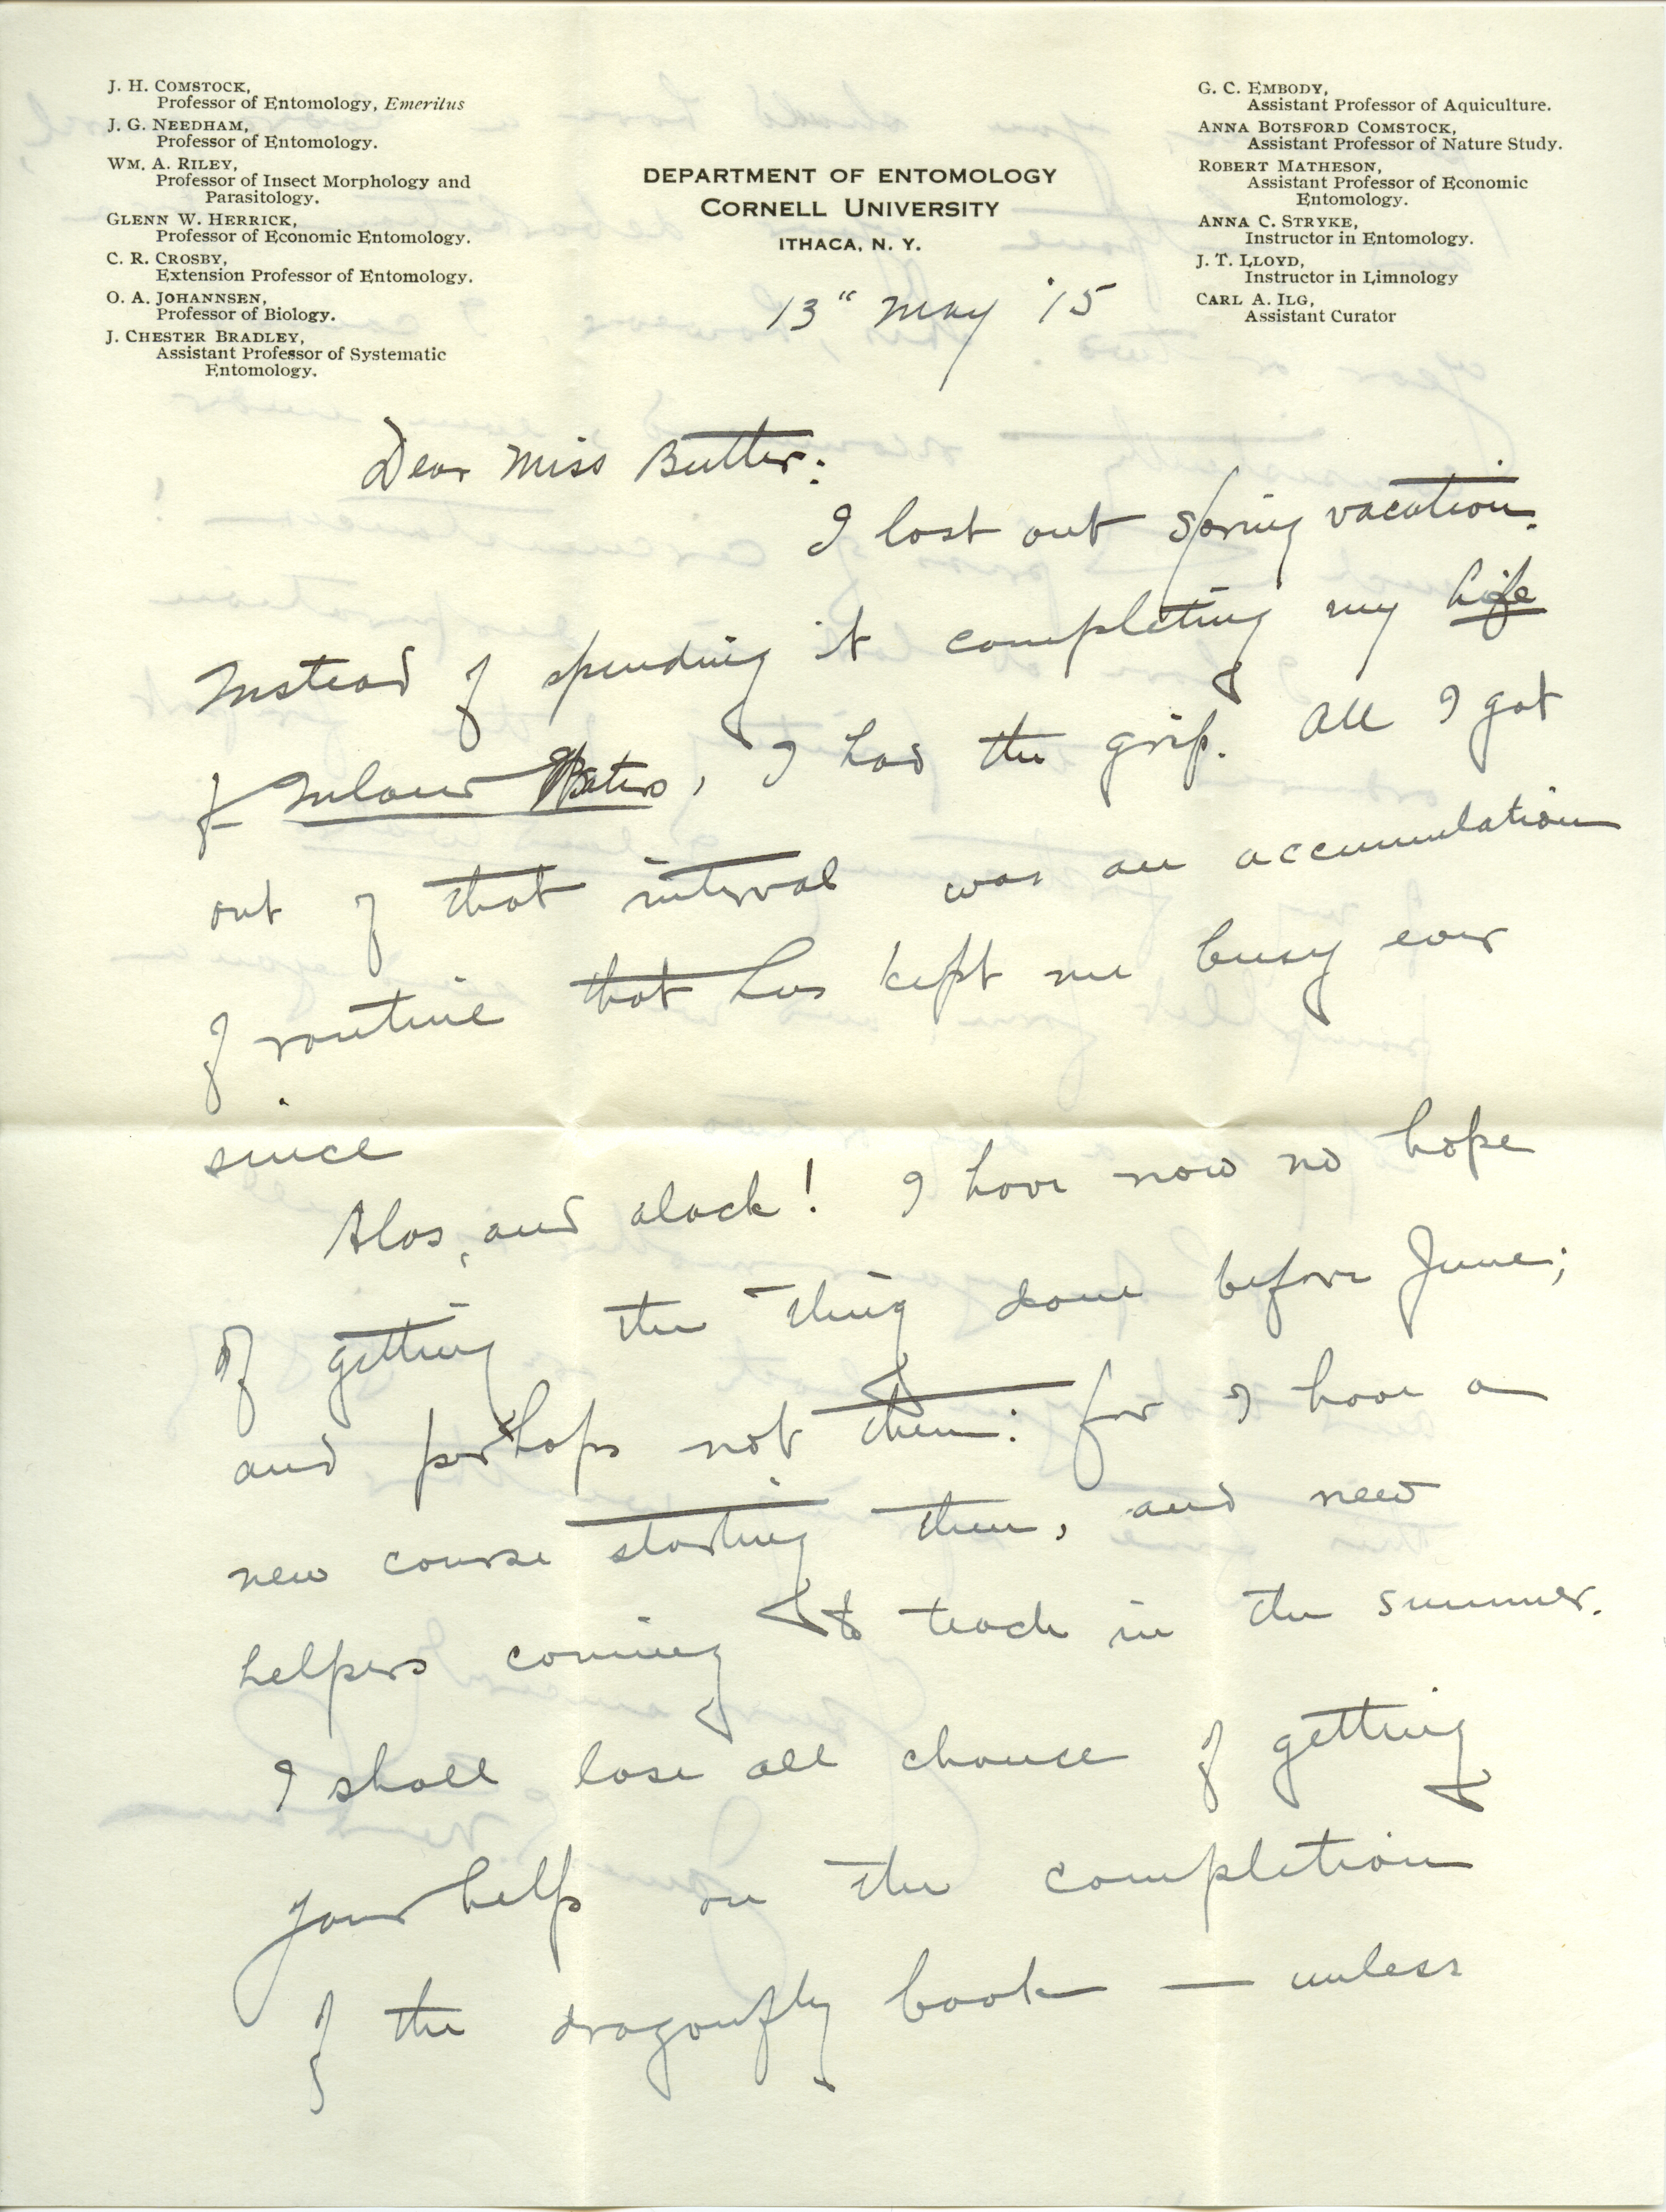 J. H. COMSTOCK,
Professor of Entomology, Emeritus
J. G. NEEDHAM,
Professor of Entomology.
WM. A. RILEY,
Professor of Insect Morphology and
Parasitology.
GLENN W. HERRICK,
Professor of Economic Entomology.
C. R. CROSBY,
Extension Professor of Entomology.
O. A. JOHANNSEN,
Professor of Biology.
J. CHESTER BRADLEY,
Assistant Professor of Systematic
Entomology.
DEPARTMENT OF ENTOMOLOGY
CORNELL UNIVERSITY
ITHACA, N. Y.
G. C. EMBODY,
Assistant Professor of Aquiculture.
ANNA BOTSFORD COMSTOCK,
Assistant Professor of Nature Study.
ROBERT MATHESON,
Assistant Professor of Economic
Entomology.
ANNA C. STRYKE,
Instructor in Entomology.
J. T. LLOYD,
Instructor in Limnology
CARL A. ILG,
Assistant Curator
13" May '15
Dear Miss Butler:
I lost out Spring vacation.
Instead of spending it completing my Life
of Inland Waters, I had the grip. All I got
out of that interval was an accumulation
of routine that has kept me busy ever
since
Alas, and alack! I have now no hope
of getting the thing done before June;
and perhaps not then: for I have a
new course starting then, and new
helpers coming to teach in the summer.
I shall lose all chance of getting
your help on the completion
of the dragonfly book — unless